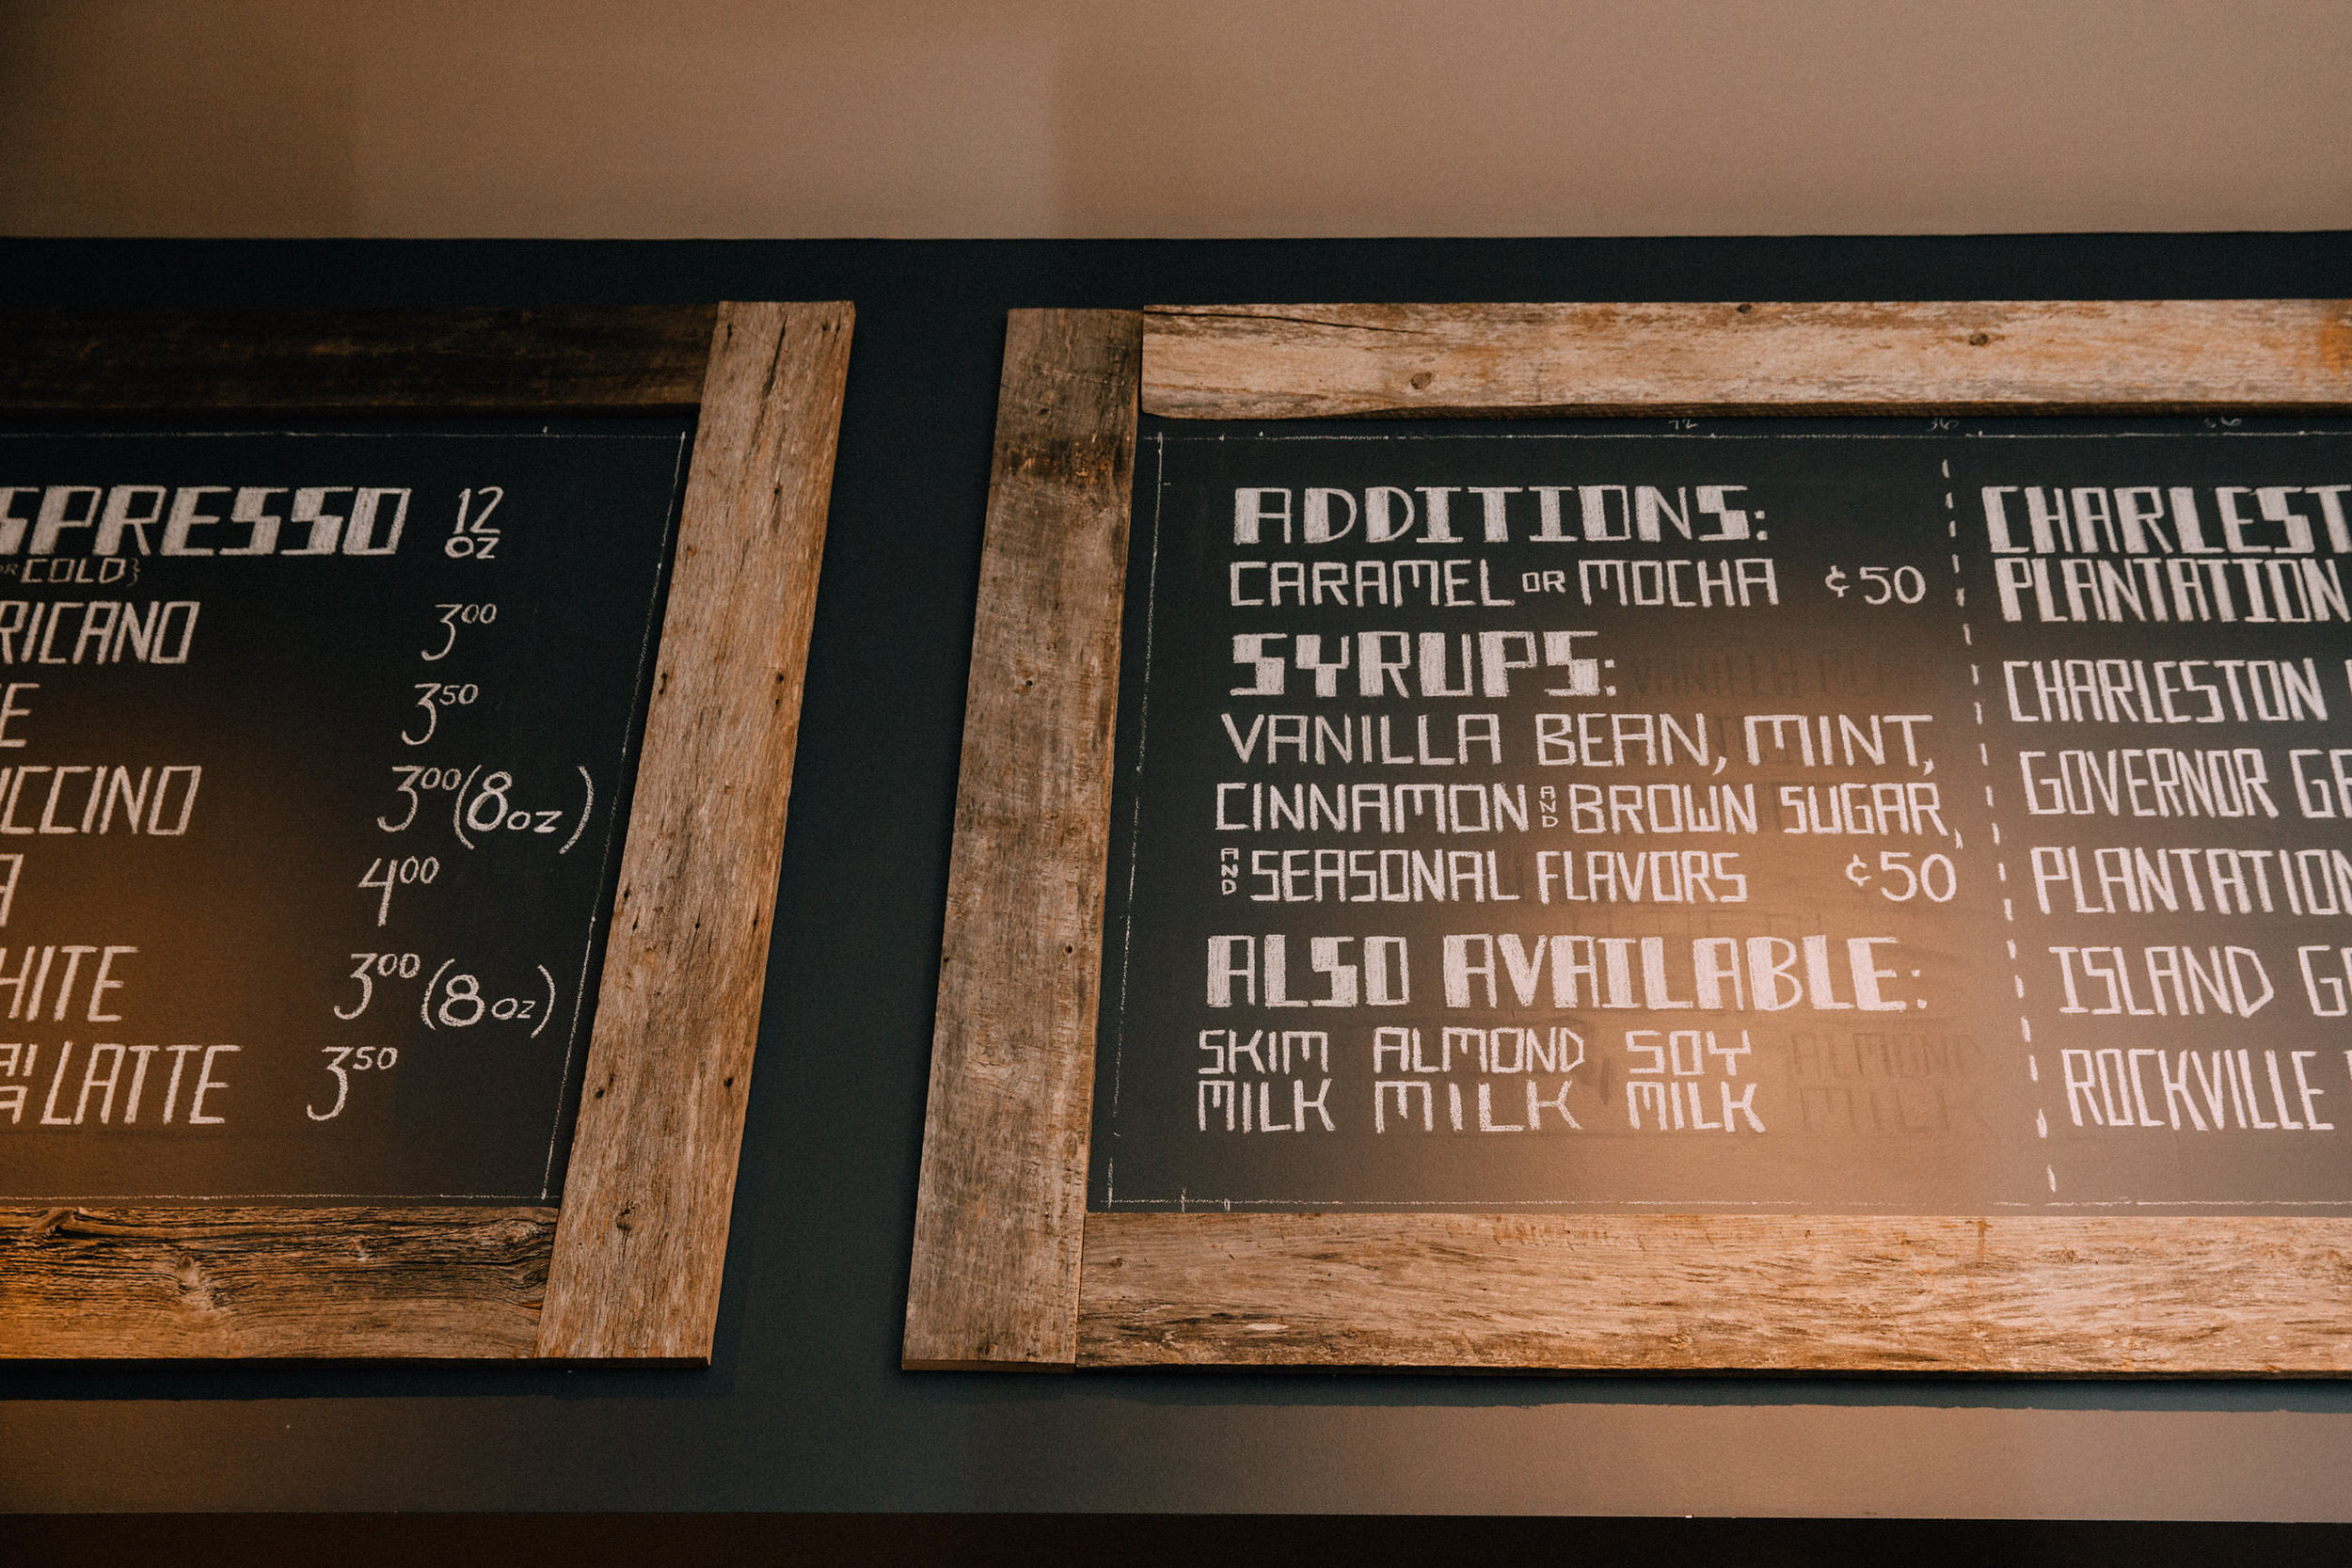 SPRESSO 12 OZ
OR COLD}
RICANO 3 00
E 3 50
UCCINO 3 00 (8 OZ)
A 4 00
HITE 3 00 (8 OZ)
AI
A LATTE 3 50
ADDITIONS:
CARAMEL OR MOCHA ¢50
SYRUPS:
VANILLA BEAN, MINT,
CINNAMON AND BROWN SUGAR,
AND SEASONAL FLAVORS ¢50
ALSO AVAILABLE:
SKIM ALMOND SOY ALMOND
MILK MILK MILK MILK
CHARLEST
PLANTATION
CHARLESTON
GOVERNOR G
PLANTATION
ISLAND G
ROCKVILLE